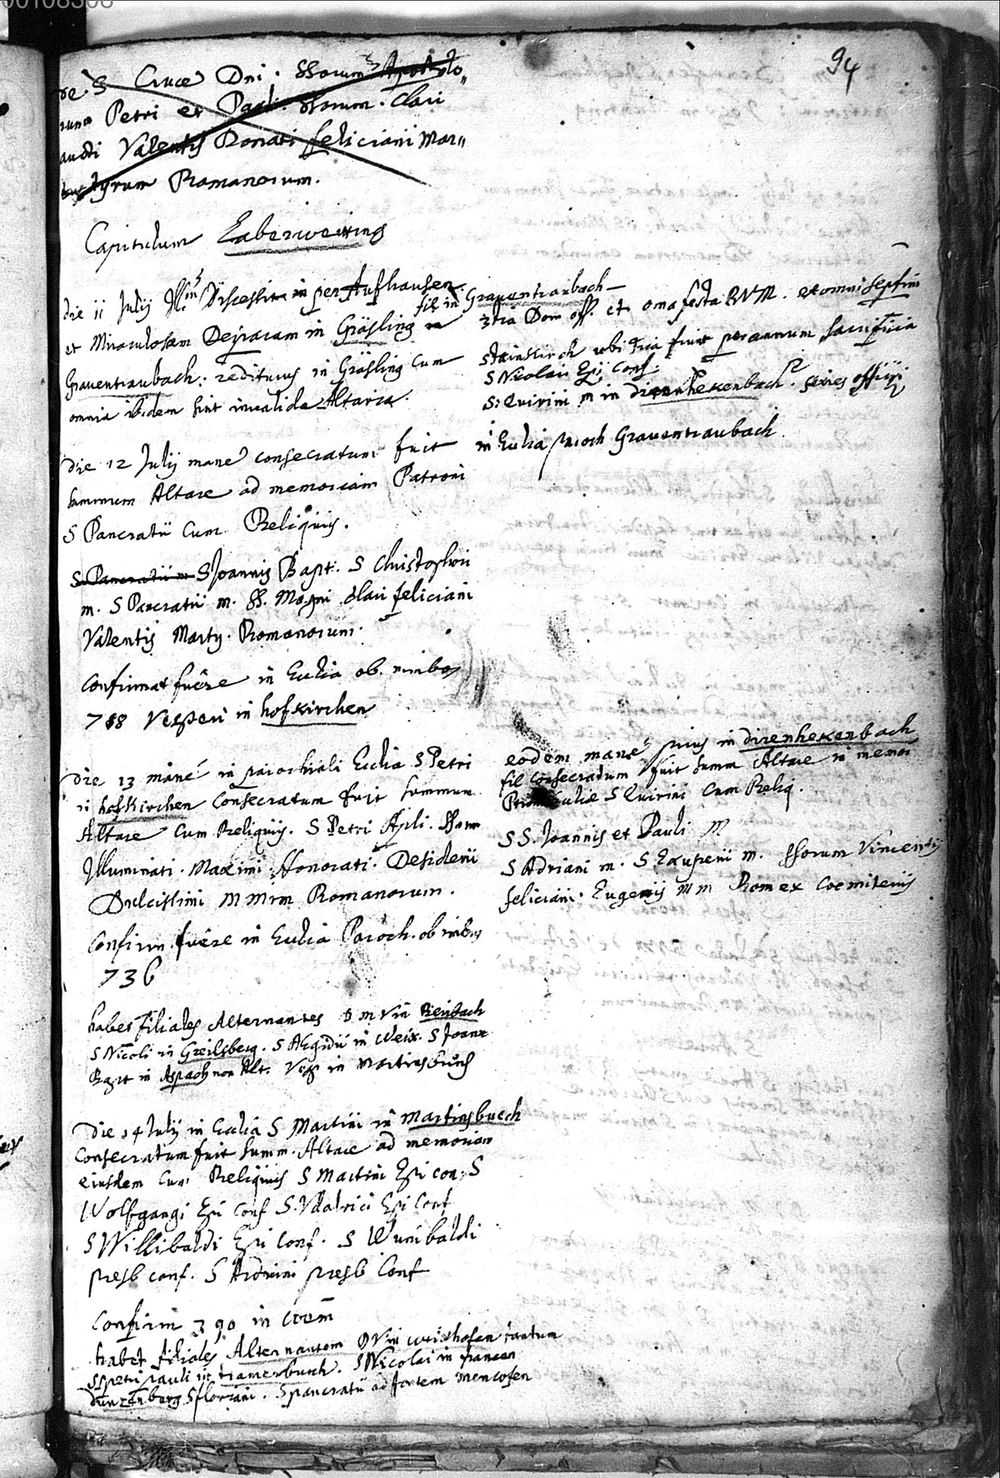 94
de S Cruce Dni. SSorum Aposto„
rum Petri et Pauli. SSorum. Clari
aucti Valentis Donati feliciani Mar„
tyrum Romanorum.
Capitulum Laberweinting
die 11 July Illm discessit in per Aufhausen
et Miraculosam Deiparam in Gräsling in
Grauentraubach: rediturus in Gräsling cum
omnia ibidem sint invalida Altaria.
fil in Grauentraubach
3tia Dom off. et omã festa BVM. et omni septim
Stainkirch ubi tria fiunt per annum sacrificia
S Nicolai Epi Conf.
S: Quirini m in direnhekenbach. series officij
in Eccla paroch Grauentraubach.
die 12 July mane consecratum fuit
summum Altare ad memoriam Patroni
S Pancratii Cum Reliquijs.
S Pancratii m S Joannis Bapt. S Christophori
m. S Pancratii m. SS. Magni Clari feliciani
Valentis Marty. Romanorum.
Confirmat fuêre in Eccla ob. nimbos
788 Vesperi in hofkirchen
die 13 manè in parochiali Ecclia S Petri
in hofkirchen Consecratum fuit summum
Altare Cum Reliquijs. S Petri Apli. SSorm
Illuminati. Maximi Honorati. Desiderii
Dulcissimi MMrm Romanorum.
Confirm. fuêre in Ecclia Paroch. ob nimbos
736
eodem manè prius in direnhekenbach
fil Consecratum fuit summ Altare in memor
Ecclie S Quirini Cum Reliq.
SS. Joannis et Pauli M
S Adriani m. S Exuperii m. SSorum Vincentij
feliciani. Eugenij MM Rom ex Coemiterijs
habet filiales Alternantes B M V in
S Nicoli in Greilsberg. S Aegidii in Weix. S Joann
Bapt in Aspach non Alt. in Martinsbuch
die 14 July in Ecclia S Martini in Martinsbuech
Consecratum fuit summ. Altare ad memoriam
eiusdem Cum Reliquiis S Martini Epi con. S
Wolfgangi Epi Conf S. Vdalrici Epi Conf
S Willibaldi Epi Conf. S Wunibaldi
presb conf. S presb Conf
Confirm 390 in
habet filiales Alternantem in weixhofen tantum
SS Petri Pauli in tramersbuch. S Nicolai in franken
S floriani. S pancratii ad fontem Mencofen